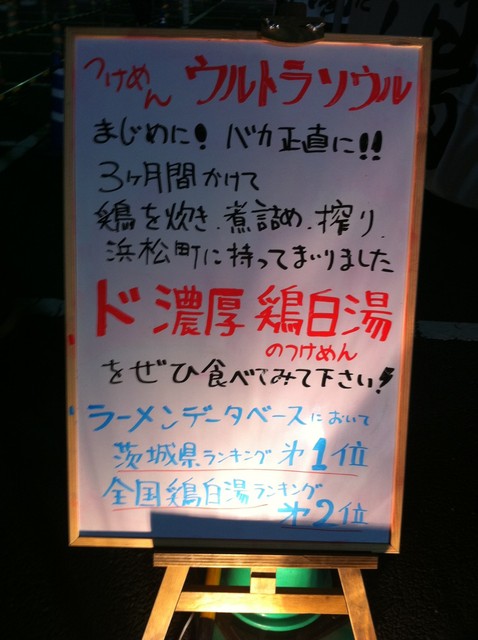 つけめん ウルトラソウル
まじめに! バカ正直に!!
3ヶ月間かけて
鶏を炊き.煮詰め.搾り.
浜松町に持ってまいりました
ド濃厚鶏白湯
のつけめん
をぜひ食べてみて下さい!
ラーメンデータベースにおいて
茨城県ランキング 第1位
全国鶏白湯ランキング
第2位